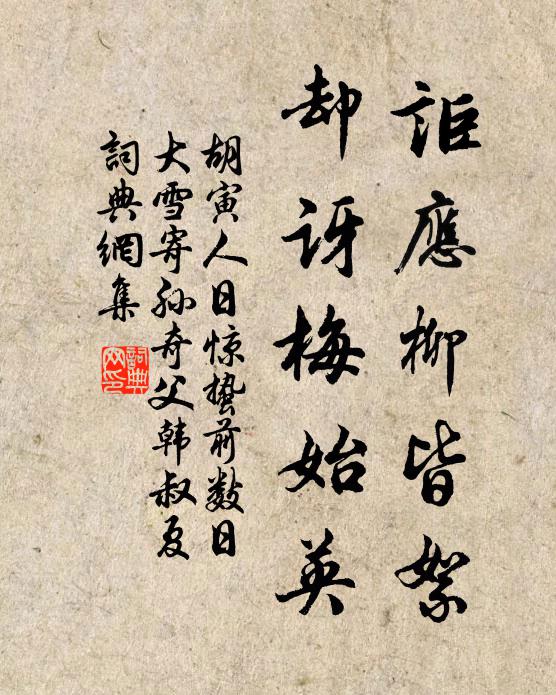 詎應柳皆絮
却訝梅始英
胡寅人日惊蛰前数日
大雪寄孙奇父韩叔夏
詞典網集
詞典网印